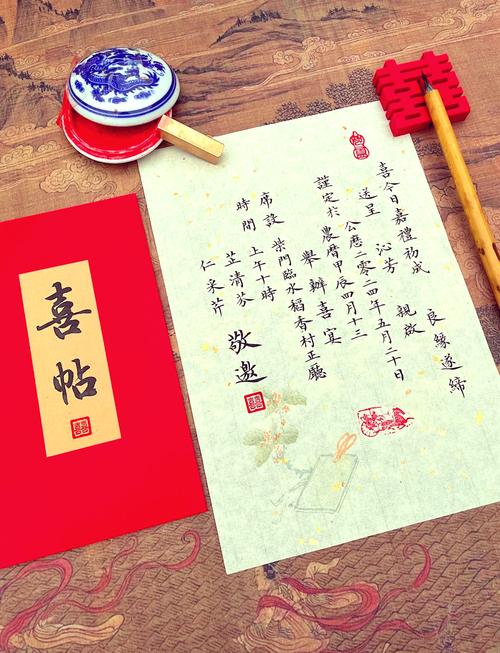 囍
喜今日嘉禮初成 良緣遂締
送呈 沁芳 親啟
公曆二零二四年五月二十日
謹定於 農曆甲辰四月十三
舉辦喜宴
席設 柴門臨水稻香村正廳
時間 上午十時
芷清芬
仁采芹
敬邀
囍
喜帖
囍